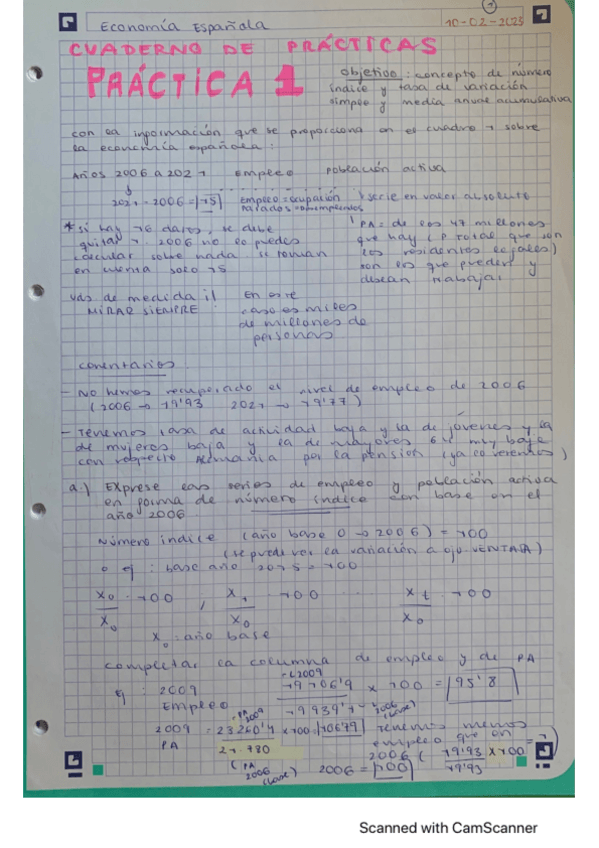 1
Economía Española
10-02-2025
CUADERNO DE PRÁCTICAS
PRÁCTICA 1
objetivo: concepto de número
índice y tasa de variación
simple y media anual acumulativa
con la información que se proporciona en el cuadro 1 sobre
la economía española:
Años 2006 a 2021
empleo
población activa
2021-2006=15
empleo=ocupación
serie en valor absoluto
* si hay 16 datos, se debe
quitar 1. 2006 no lo puedes
calcular sobre nada. se toman
en cuenta solo 15
PA = de los 47 millones
que hay (P total que son
los residentes legales)
son los que pueden y
desean trabajar
uds de medida!!
MIRAR SIEMPRE:
En este
caso es miles
de millones de
personas
comentarios:
- No hemos recuperado el nivel de empleo de 2006
(2006 → 19'93 2021 → 19'77)
- Tenemos tasa de actividad baja y la de jóvenes y la
de mujeres baja y la de mayores 64 muy baja
con respecto Alemania por la pensión (ya lo veremos)
a.) Exprese las series de empleo y población activa
en forma de número índice con base en el
año 2006
Número índice (año base 0 → 2006) = 100
(se puede ver la variación a ojo VENTAJA)
o ej: base año 2015 = 100
X0/X0 · 100 , X1/X0 · 100 ... Xt/X0 · 100
X0: año base
completar la columna de empleo y de PA
ej: 2009
Empleo
2009
19106'9 / 19939'1 x 100 = 95'8
2006 (base)
2009
PA
PA 2009
23260'4 / 21.780 x 100 = 106'79
(PA 2006 (base))
2006 = 100
Tenemos menos
empleo que en
2006 (19'93/19'93 x 100 = 1)
Scanned with CamScanner